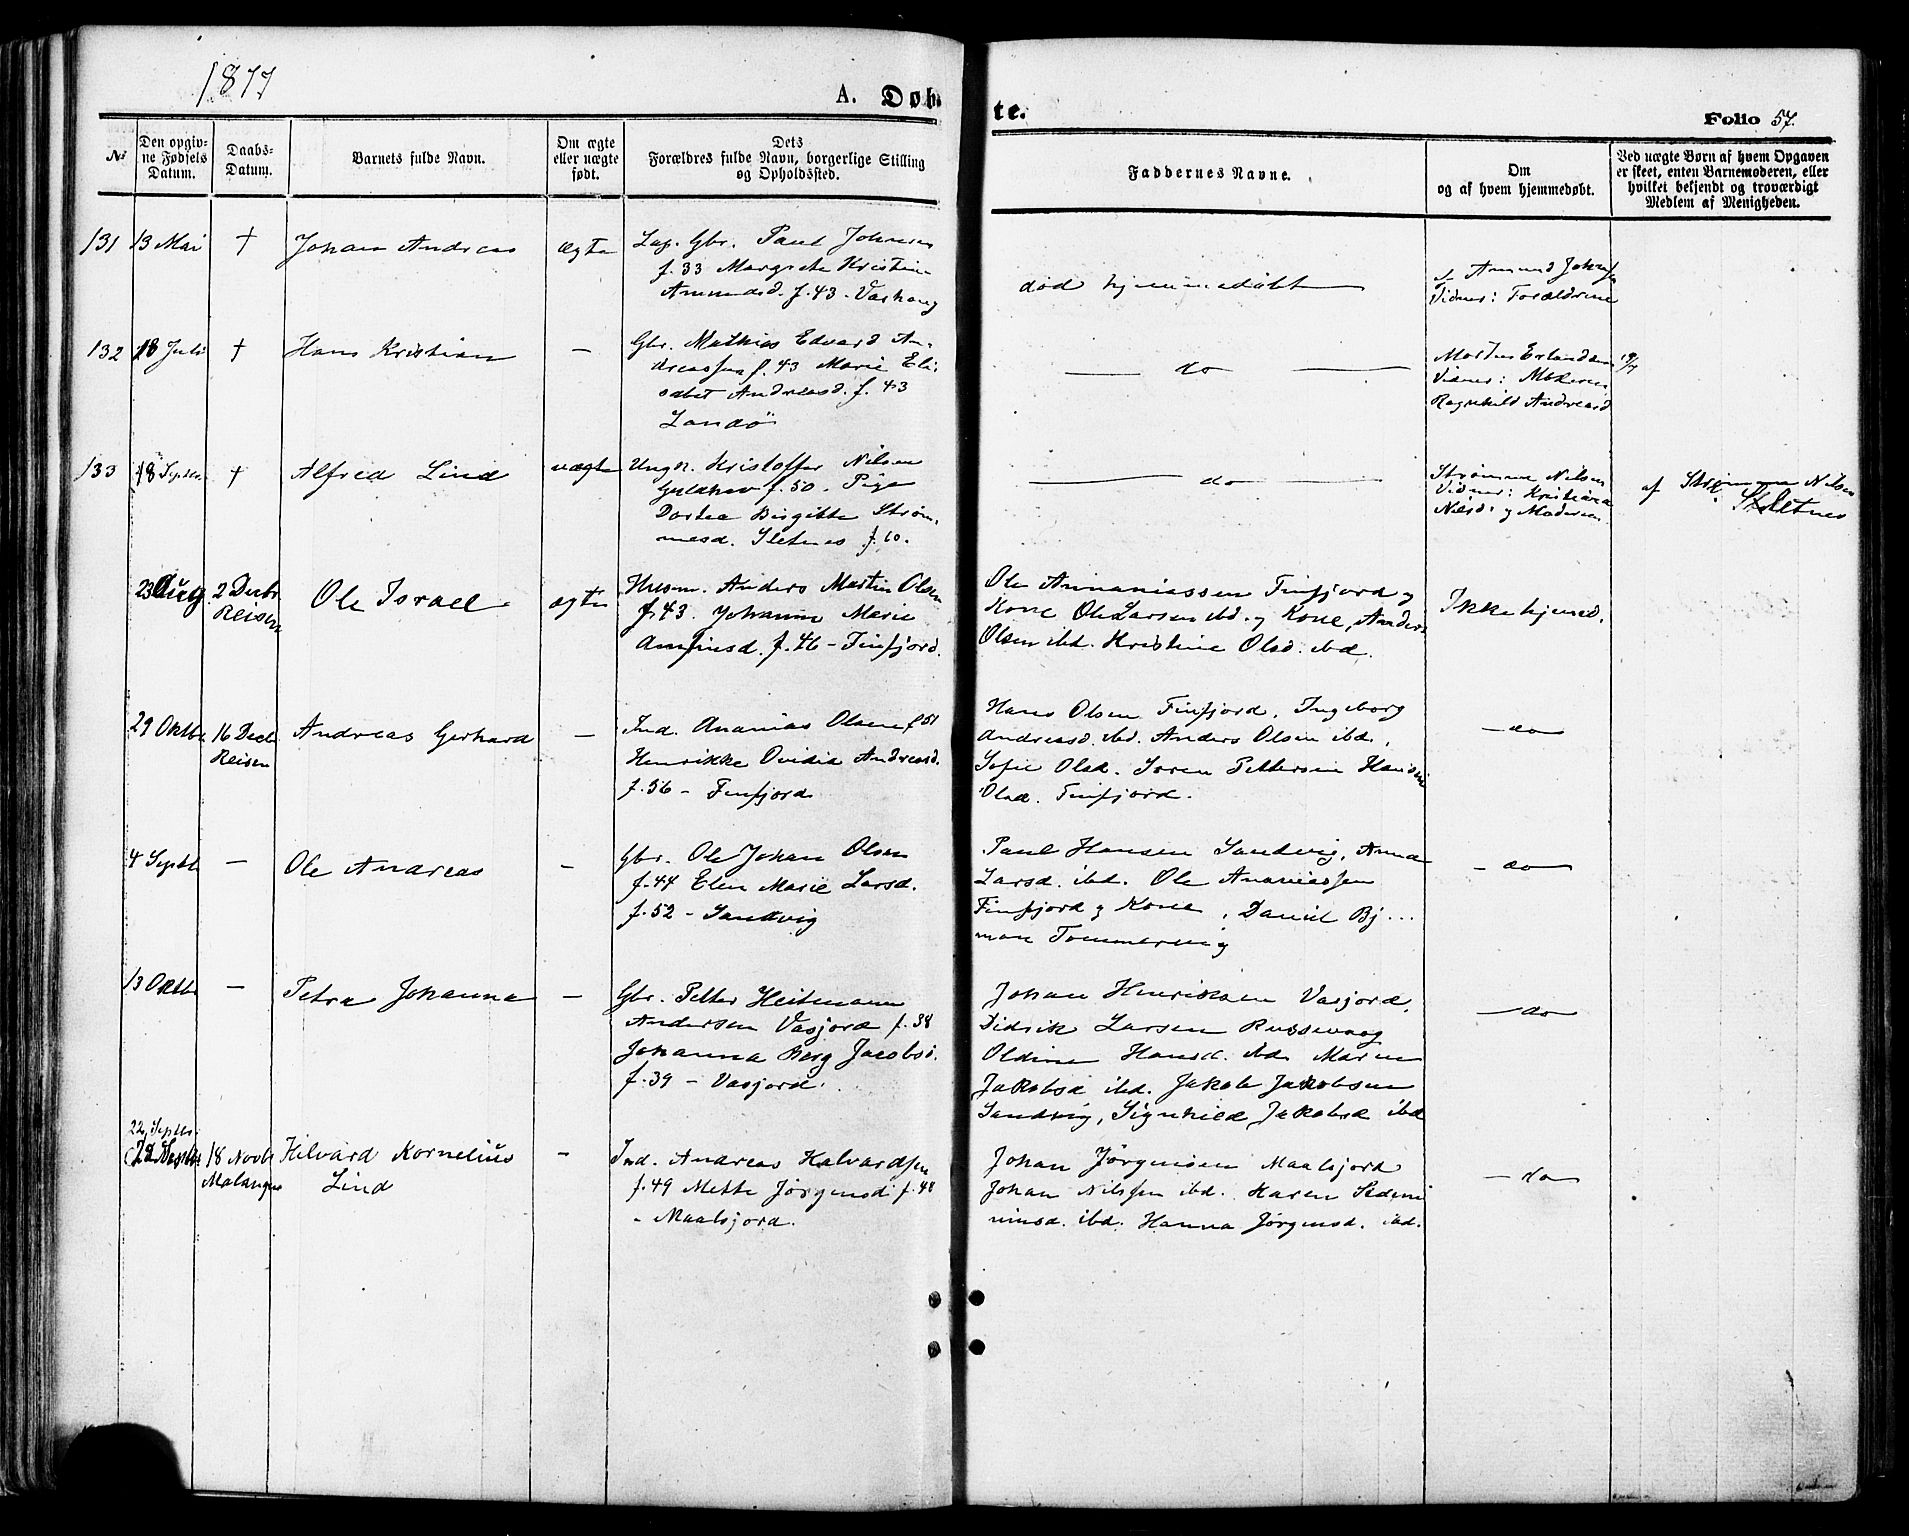 1877
A. Døb-
te.
Folio 57.
No
Den opgiv-
ne Fødsels
Datum.
Daabs-
Datum.
Barnets fulde Navn.
Om ægte
eller uægte
født.
Dets
Forældres fulde Navn, borgerlige Stilling
og Opholdsted.
Faddernes Navne.
Om
og af hvem hjemmedøbt.
Ved uægte Børn af hvem Opgaven
er skeet, enten Barnemoderen, eller
hvilket bekjendt og troværdigt
Medlem af Menigheden.
131 13 Mai † Johan Andreas ægte
Lap. Gbr. Paul Johnsen
f. 33 Margrete Kristine
Amundsd. f. 43 -
død hjemmedøbt
Amund Johnsen
Vidner: Forældrene
132 18 Juli † Hans Kristian —
Gbr. Mathias Edvard An-
dreassen f. 43 Marie Eli-
sabet Andreasd. f. 43
Sandø
— do —
Morten Erlandsen 19/7
Vidner: Moderen
Ragnhild Andreasd
133 18 Septbr. † Alfred Lind uægte
Ungk. Kristoffer Nilsen
f. 50. Pige
Dortea Birgitte Strøm-
mesd. Sletnes f. 60.
— do —
Strømme Nilsen
Vidner: Kristiana
Nilsd. og Moderen
af Strømme Nilsen
Sletnes
23 Aug. 2 Decbr. Ole Israel ægte
Reisen
Husm. Anders Martin Olsen
f. 43. Johanna Marie
Amfinsd. f. 46 - Finfjord.
Ole Annaniassen Finfjord og
Kone Ole Larsen ibd. og Kone, Anders
Olsen ibd. Kristine Olsd. ibd.
Ikke hjemd.
29 Oktbr. 16 Decbr. Andreas Gerhard —
Reisen
Ind. Ananias Olsen f. 51
Henrikke Ovidia Andreasd.
f. 56 - Finfjord
Hans Olsen Finfjord, Ingeborg
Andreasd. ibd. Anders Olsen ibd.,
Sofie Olsd. Søren Pettersen
Olsd. Finfjord.
— do
4 Septbr — Ole Andreas —
Gbr. Ole Johan Olsen
f. 44 Elen Marie Larsd.
f. 52 - Sandvig
Paul Hansen Sandvig, Anna
Larsd. ibd. Ole Ananiassen
Finfjord og Kone, Daniel Bj...
man Tommervig
— do
13 Oktbr — Petra Johanna —
Gbr. Petter Heitmann
Andersen Vasjord f. 38
Johanna Berg Jacobsd.
f. 39 - Vasjord.
Johan Henriksen Vasjord,
Didrik Larsen Russevaag
Oldine Hansd. ibd. Maren
Jakobsd ibd. Jakob Jakobsen
Sandvig, Signhild Jakobsd ibd
— do
22 Septbr.
18 Novbr Hilvard Kornelius —
Malangen Lind
Ind. Andreas Halvardsen
f. 49 Mette Jørgensd f. 48
- Maalsjord.
Johan Jørgensen Maalsjord
Johan Nilssen ibd. Karen
ibd. Hanna Jørgensd. ibd.
— do